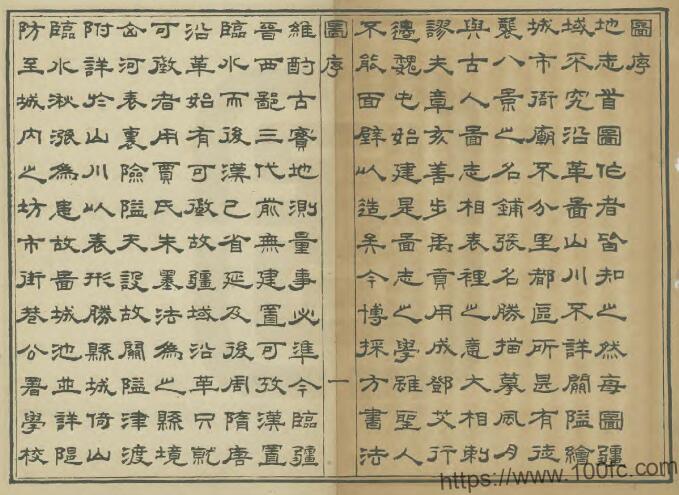 圖序
地志首圖作者皆知之然每圖疆
域不究沿革圖山川不詳關隘繪
城市衙廟不分里都區所甚有徒
襲八景之名鋪張名勝描摹風月
與古人圖志相表裡之意大相刺
謬夫章亥善步禹貢用成鄧艾行
邊魏屯始建是圖志之學雖聖人
不能面壁以造矣今博採方書法
圖序 一
維酌古實地測量事必準今臨疆
晉西鄙三代前無建置可攷漢置
臨水而後漢已省延及後周隋唐
沿革始有可徵故疆域沿革只就
可徵者用賈氏朱墨法為之縣境
河表裏險隘天設故關隘津渡
附詳於山川以表形勝縣城倚山
臨水湫漲為患故圖城池並詳隄
防至城內之坊市街巷公署學校
https://www.100fc.com